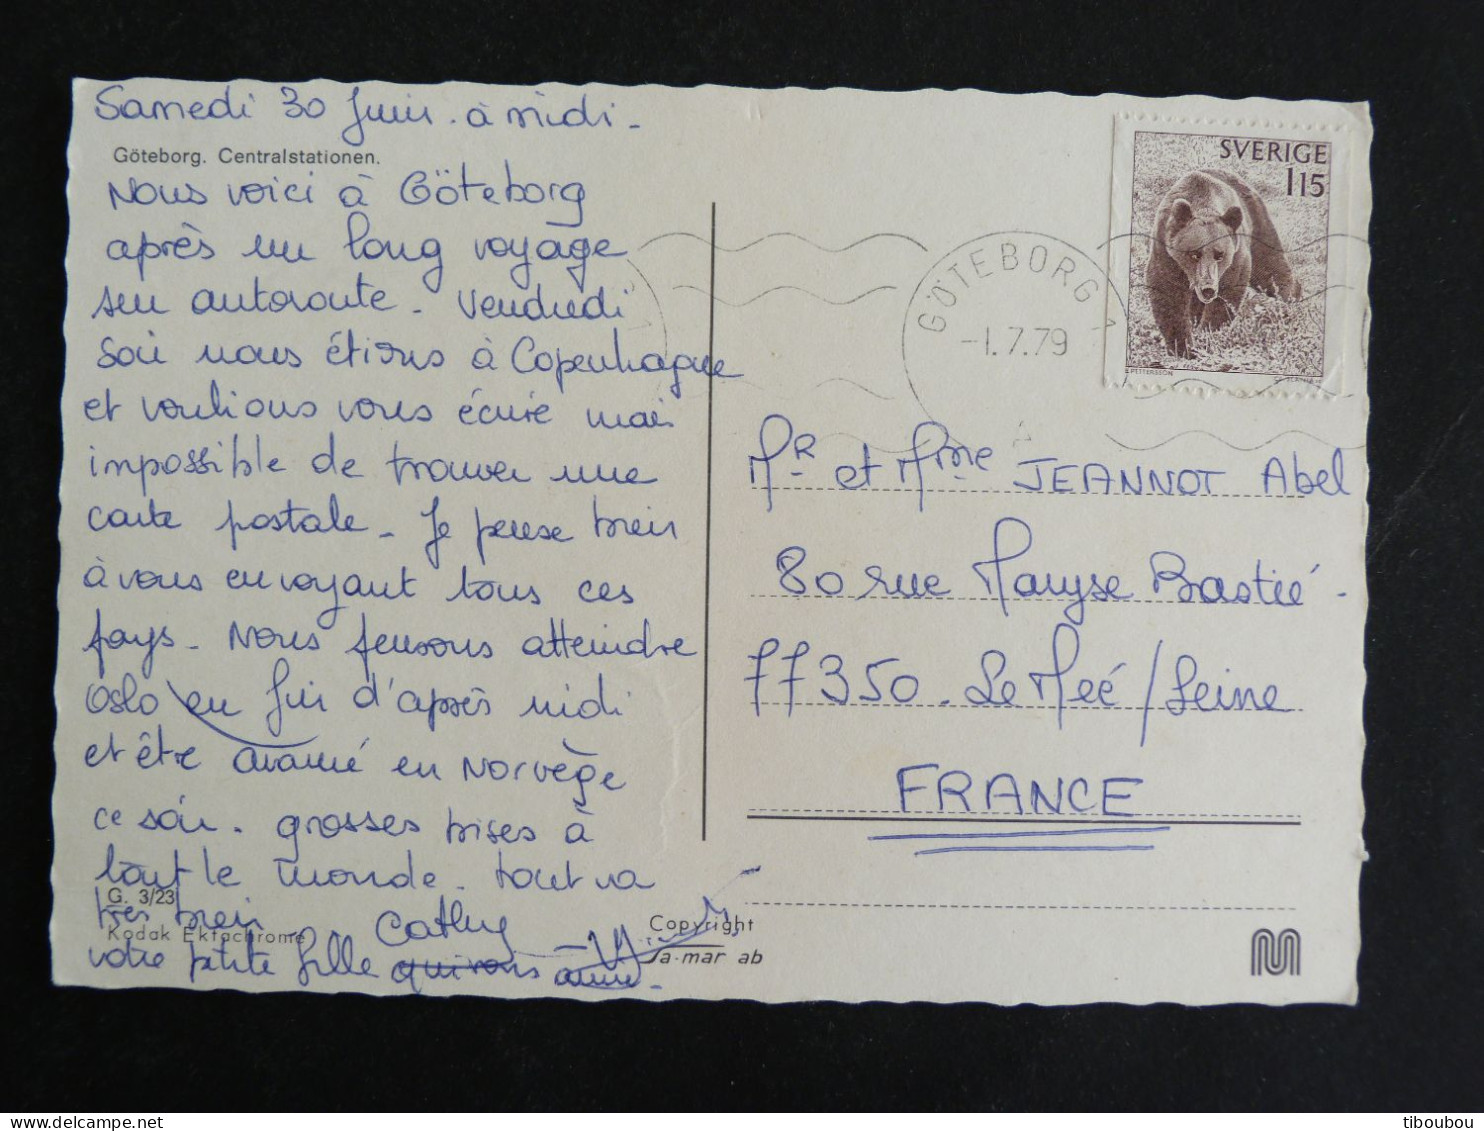 Samedi 30 Juin. à midi -
Göteborg. Centralstationen.
Nous voici à Göteborg
après un long voyage
sur autoroute - vendredi
soir nous étions à Copenhague
et voulions vous écrire mais
impossible de trouver une
carte postale - Je pense bien
à vous en voyant tous ces
pays - Nous pensons atteindre
Oslo en fin d'après midi
et être avancé en Norvège
ce soir - grosses bises à
tout le monde - tout va
G. 3/23
très bien
Kodak Ektachrome
Cathy
votre petite fille qui vous aime -
Copyright
a-mar ab
SVERIGE
1 15
GÖTEBORG 1
-1.7.79
A
Mr et Mme JEANNOT Abel
80 rue Maryse Bastié -
77350 - Le Meé / Seine
FRANCE
tiboubou